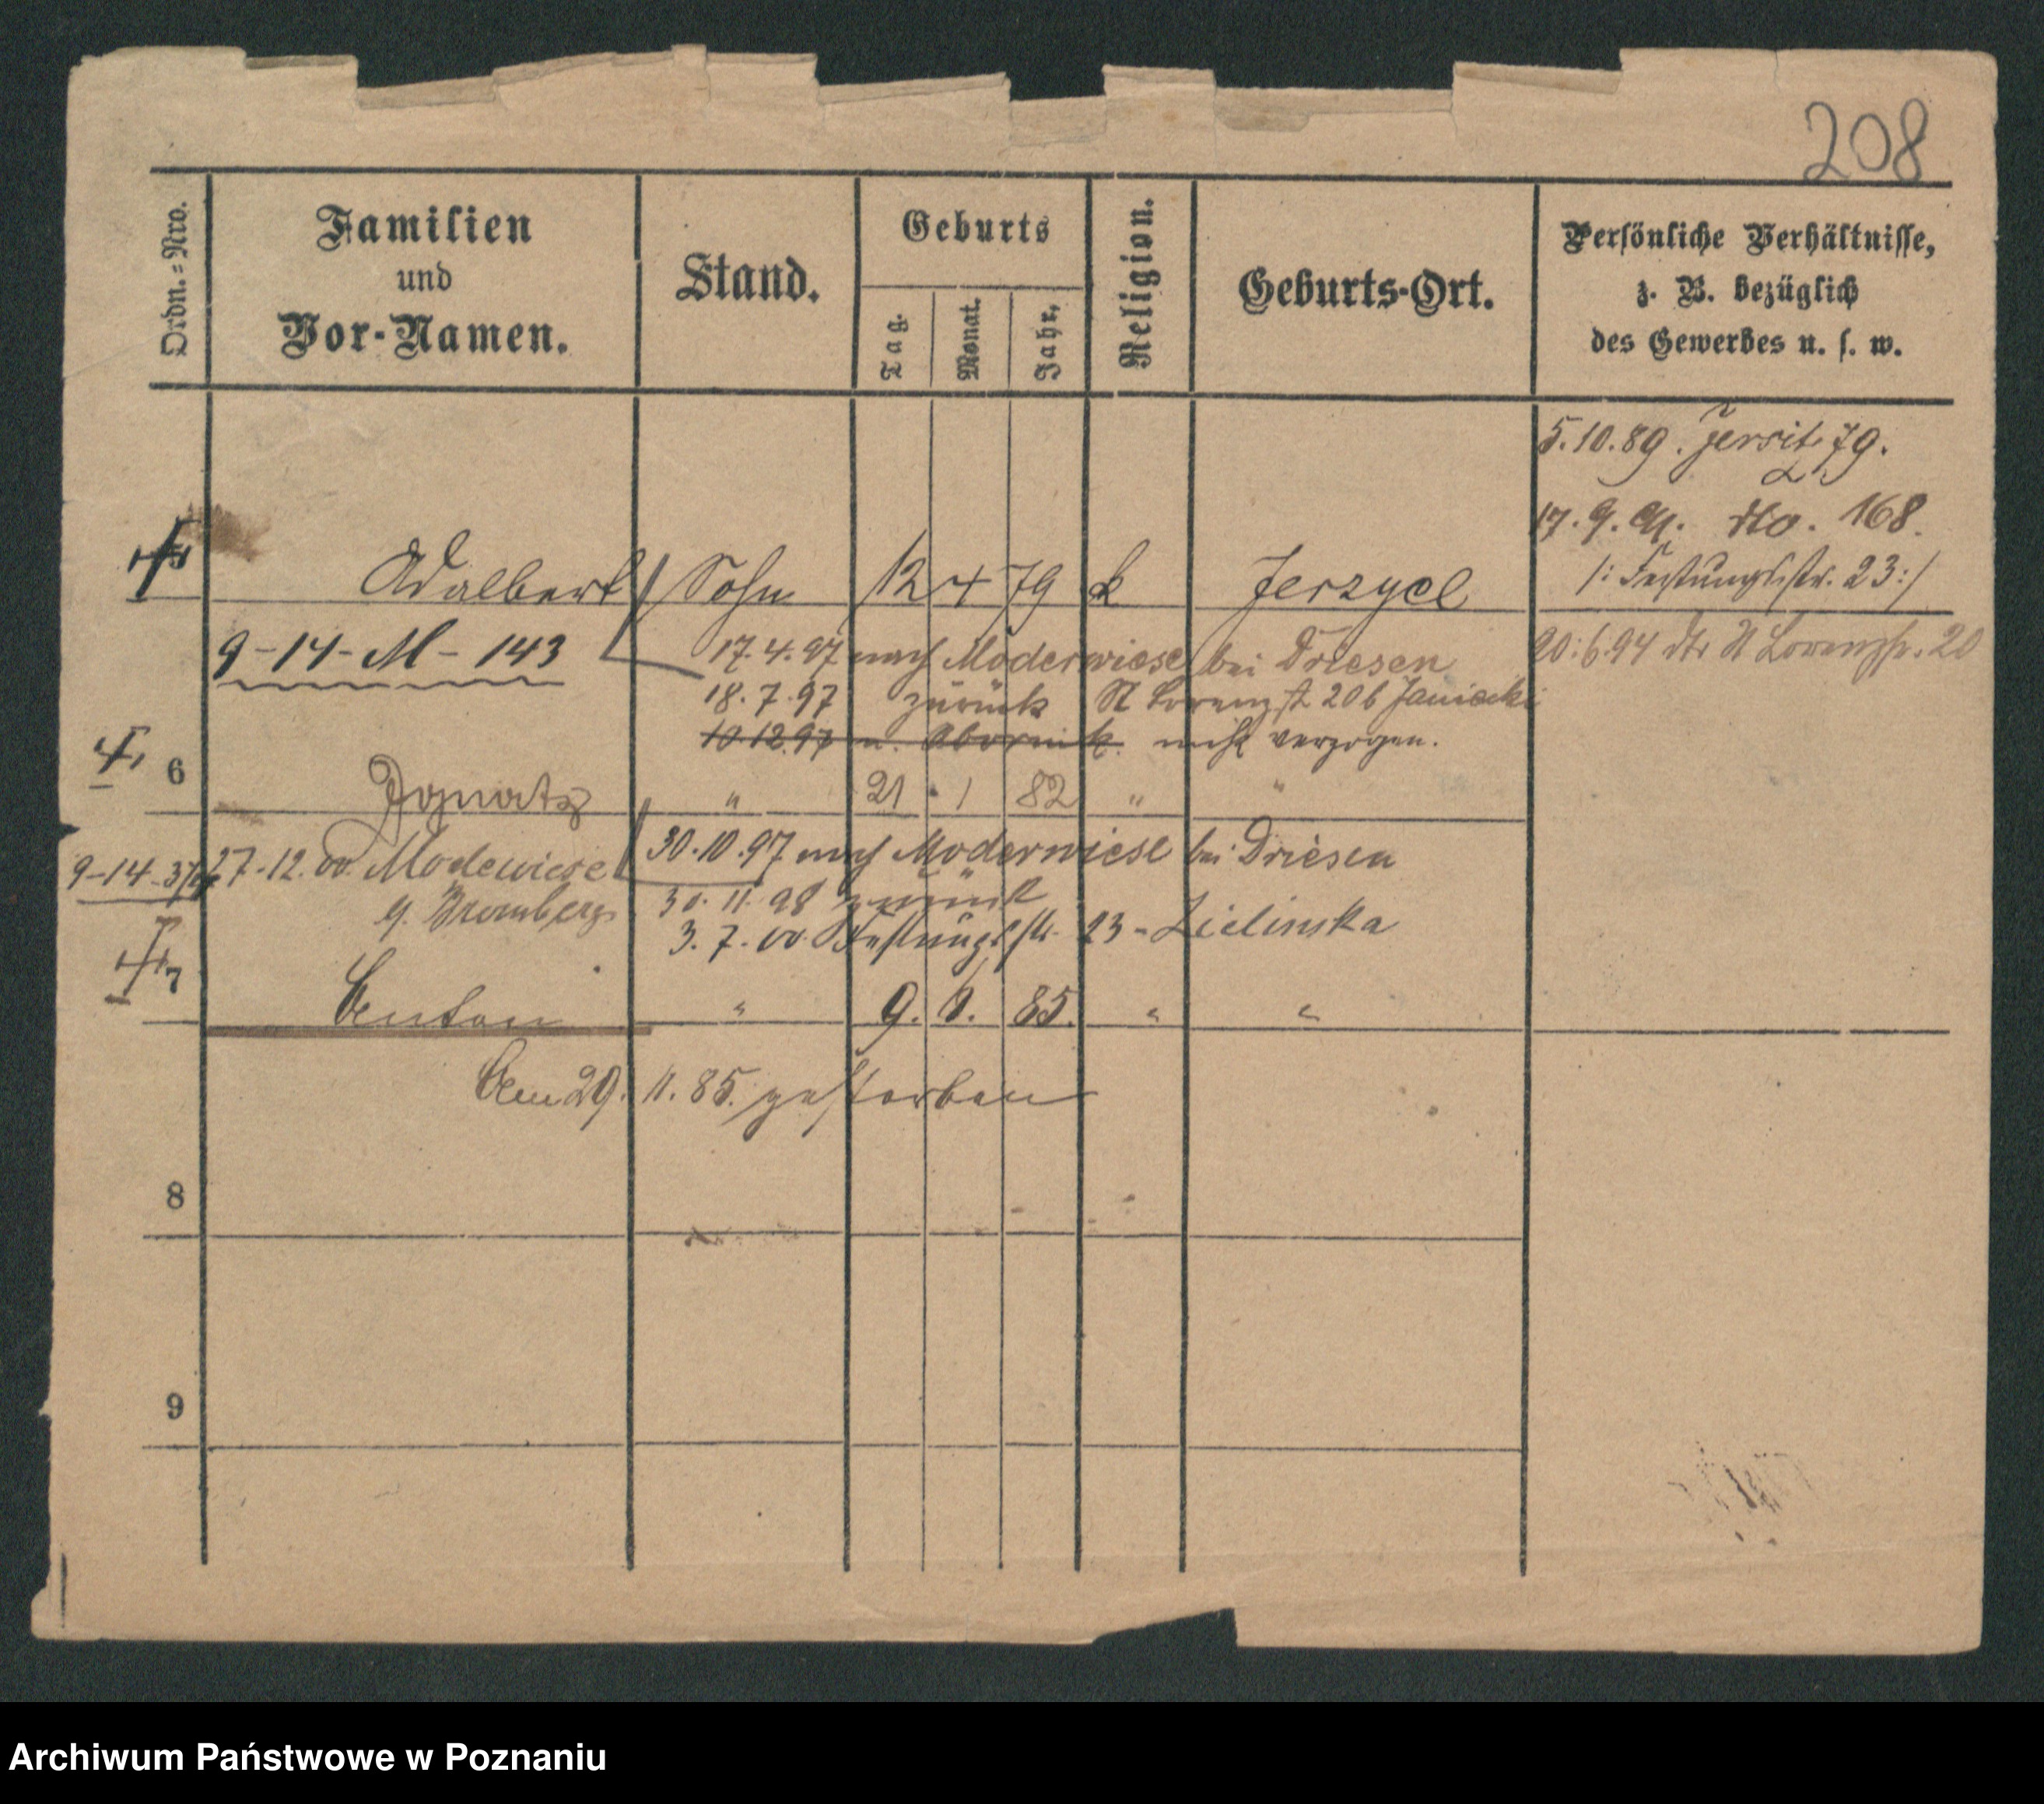 208
Ordn.=Nro.
Familien
und
Vor-Namen.
Stand.
Geburts
Tag.
Monat.
Jahr,
Religion.
Geburts-Ort.
Persönliche Verhältnisse,
z. B. bezüglich
des Gewerbes u. s. w.
5.10.89. Jersitz 79.
17.9.91. dto. 168.
/: Festungsstr. 23 :/
5 Adalbert Sohn 12 4 79 k Jerzyce
20.6.94 St Lorenzstr. 20
9-14-M-143
17.4.97 nach Moderwiese bei Driesen
18.7.97 zurück St Lorenzst 20 b Janiacki
10.12.97 n. Obornik. nicht verzogen.
6 Ignatz " 21 1 82 " "
9-14-37 27.12.00. Modewiese
30.10.97 nach Moderwiese bei Driesen
Bromberg
30.11.98 zurück
3.7.00. Festungsstr. 23 - Zielinska
7 Anton " 9. 6. 85. " "
Am 29. 11. 85. gestorben
8
9
Archiwum Państwowe w Poznaniu